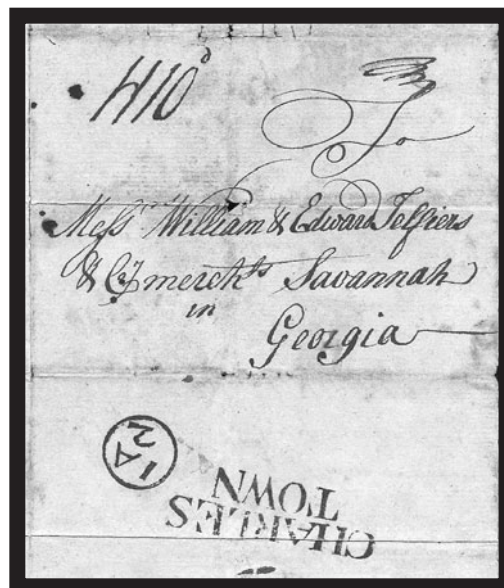 To
Mess.rs William & Edward Telfiers
& Coy merch.ts Savannah
in
Georgia
2
IA
CHARLES
TOWN